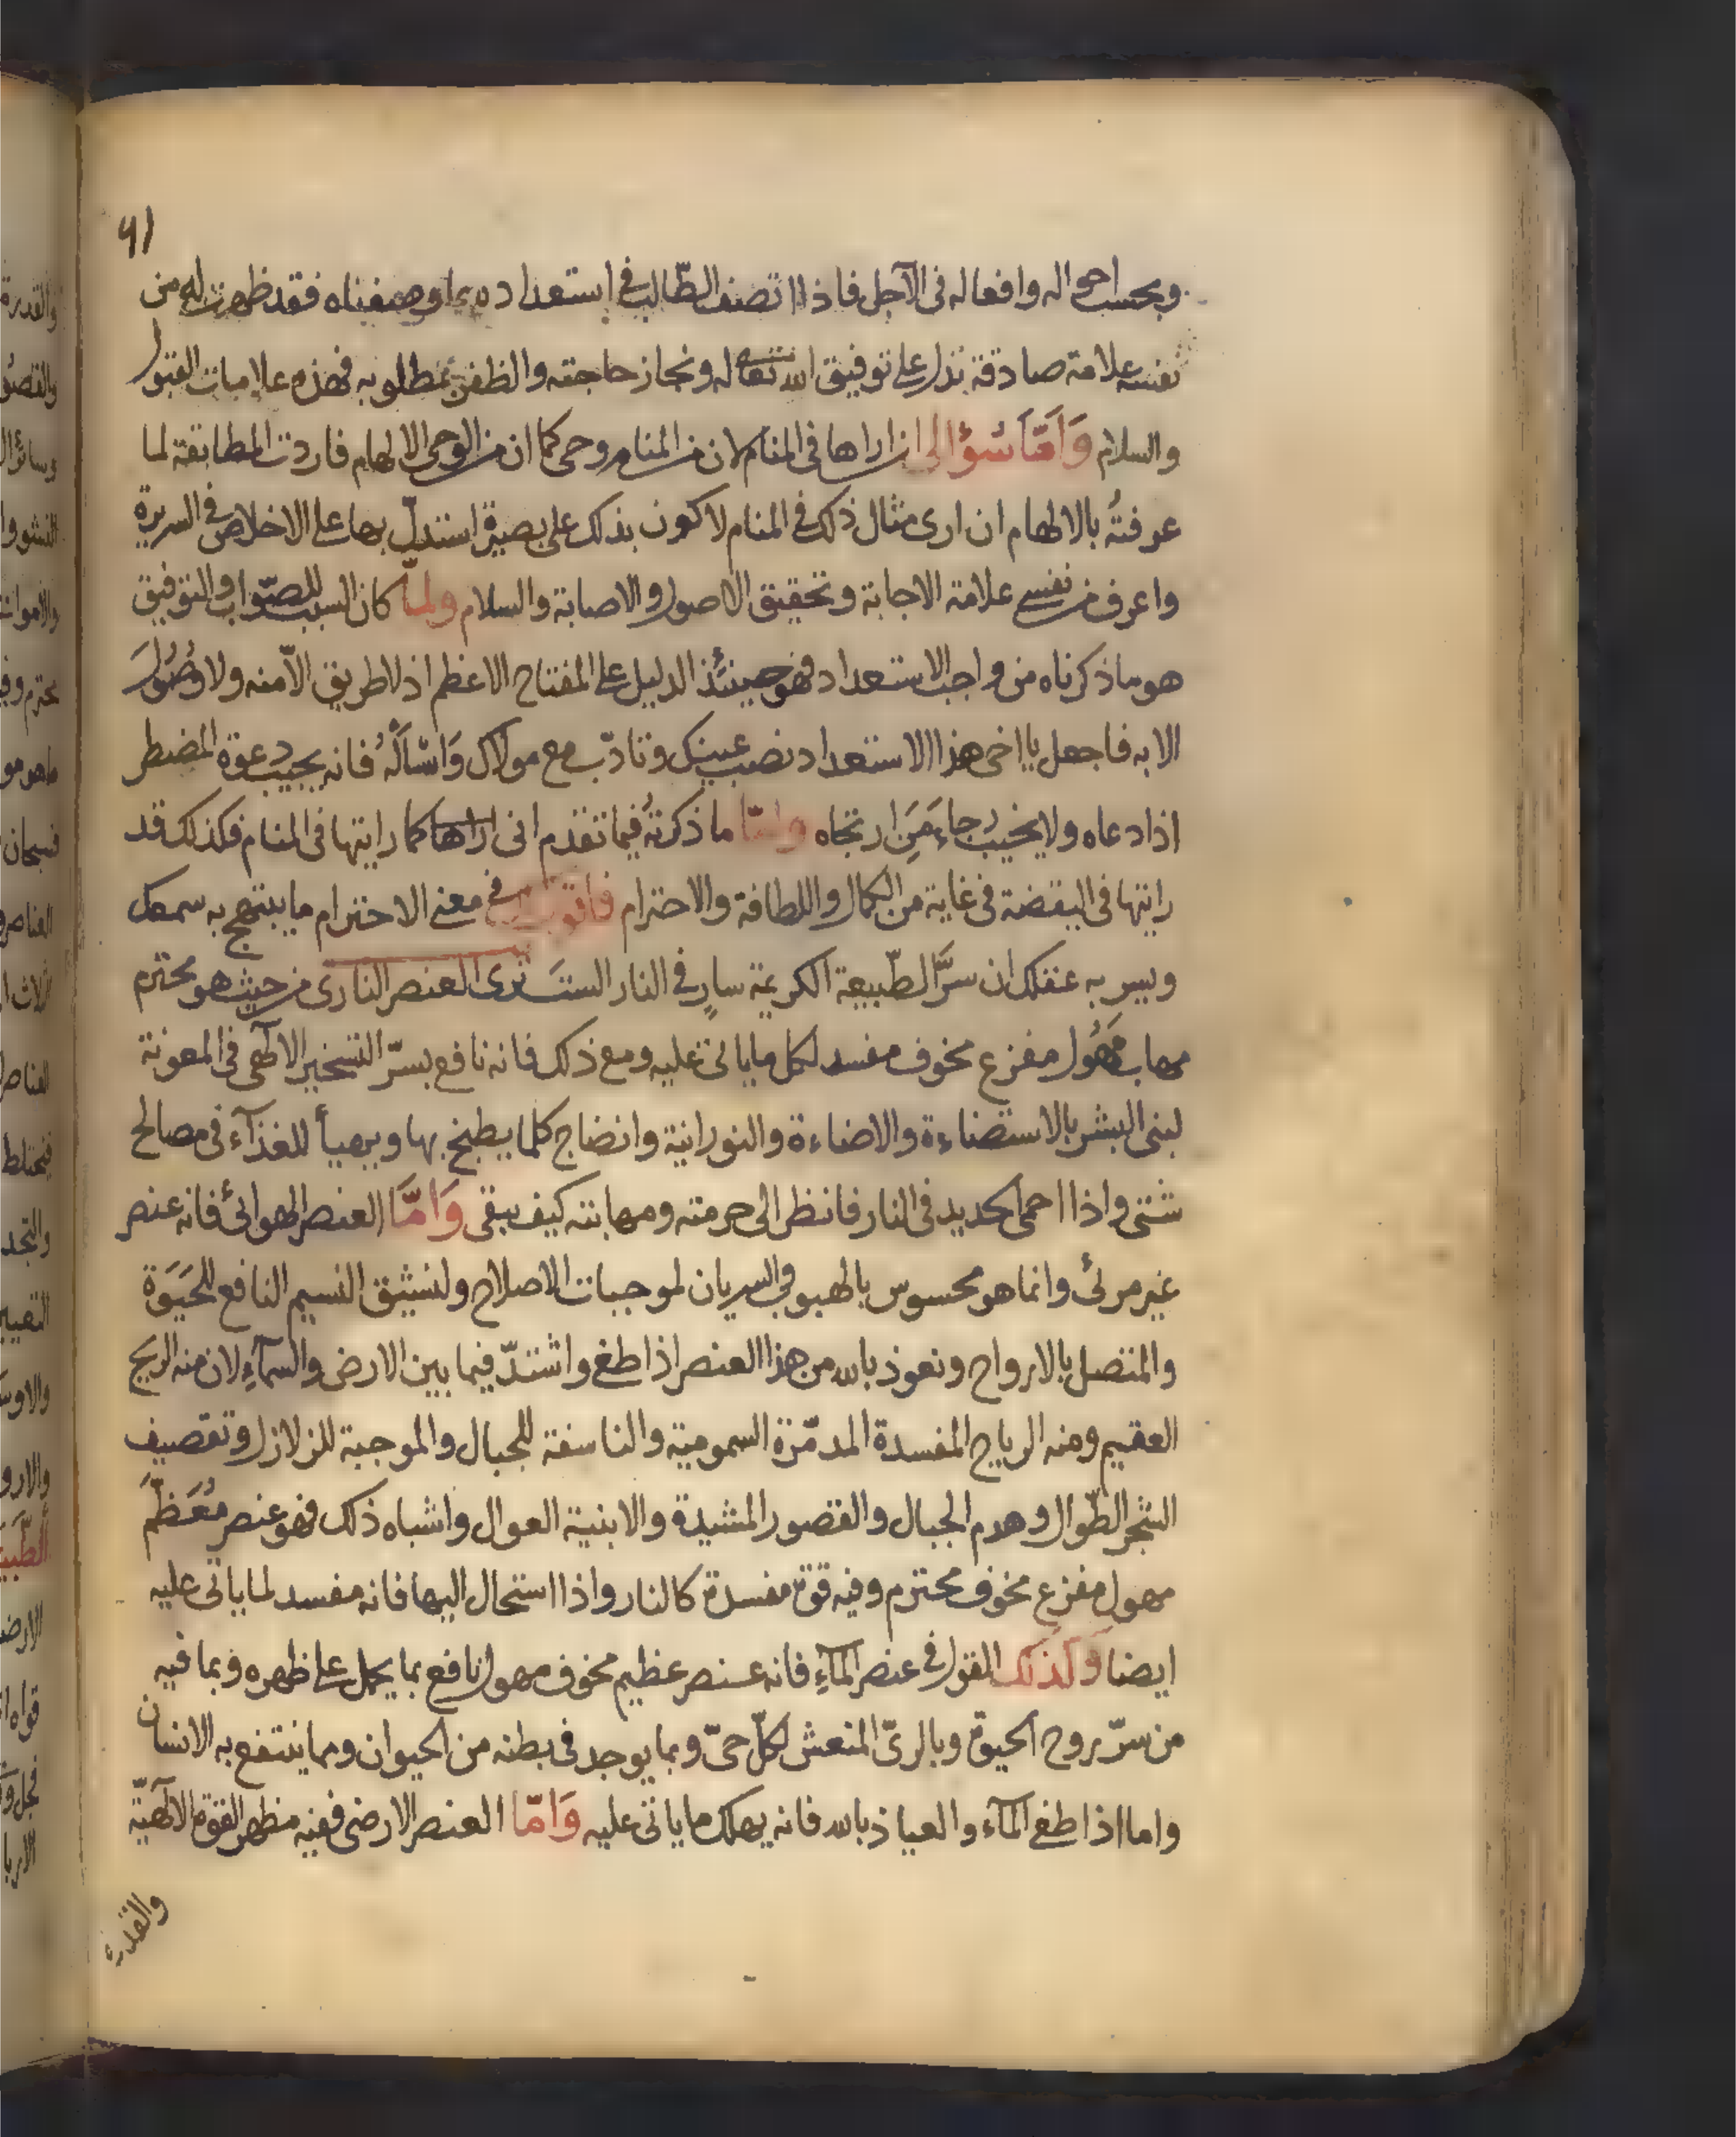 ٩١
وبحسب احواله وافعاله فى الآجل فاذا اتصف الطّالب فى استعداده بما وصفناه فقد ظهرت له من
نفسه علامة صادقة تدل على توفيق الله تعالى له ونجاز حاجته والظفر بمطلوبه فهذه علامات القبول
والسلام وَاَمّا سُؤالى ان اراها فى المنام لان من المنام وحى كما ان من الوحى الالهام فاردت المطابقة لما
عرفتُه بالالهام ان ارى مثال ذلك فى المنام لاكون بذلك على بصيرة استدلّ بها على الاخلاص فى السريرة
واعرف من نفسى علامة الاجابة وتحقيق الاصول والاصابة والسلام ولمّا كان السبب للصّواب والتوفيق
هو ما ذكرناه من واجب الاستعداد فهو حينئذ الدليل على المفتاح الاعظم اذ لا طريق الّا منه ولا وُصُولَ
الا به فاجعل يا اخى هذا الاستعداد نصب عينيك وتادّب مع مولاك وَاسْاَلْهُ فانه يجيب دعوة المضطر
اذا دعاه ولا يخيب رجاء مَنِ ارتجاه وامّا ما ذكرتهُ فيما تقدم انى اراها كما رايتها فى المنام فكذلك قد
رايتها فى اليقضة فى غاية من الكمال واللطافة والاحترام فاقول فى معنى الاحترام ما يبتهج به سمعك
ويسر به عقلك ان سرَّ الطّبيعة الكريمة سارٍ فى النار الستَ ترى العنصر النارى من حيث هو محترم
مهاب مَهُول مفزع مخوف مفسد لكل ما ياتى عليه ومع ذلك فانه نافع بسرّ التسخير الالٓهى فى المعونة
لبنى البشر بالاستضاءة والاضاءة والنورانية وانضاج كلما يطبخ بها ويهيأ للغذآء فى مصالح
شتى واذا احمى الحديد فى النار فانظر الى حرمته ومهابته كيف يبقى وَاَمَّا العنصر الهوائى فانه عنصر
غير مرئى وانما هو محسوس بالهبوب والسريان لموجبات الاصلاح ولنشيق النسيم النافع للحَيَوة
والمتصل بالارواح ونعوذ بالله من هذا العنصر اذا طغى واشتدّ فيما بين الارض والسمآءِ لان منه الريح
العقيم ومنه الرياح المفسدة المدمّرة السمومية والناسفة للجبال والموجبة للزلازل وتقصيف
الشجر الطّوال وهدم الجبال والقصور المشيدة والابنية العوال واشباه ذلك فهو عنصر مُعَظّمَ
مهول مفزع مخوف محترم وفيه قوة مفسدة كالنار واذا استحال اليها فانه مفسد لما ياتى عليه
ايضا وكذلك القول فى عنصر المآءِ فانه عنصر عظيم مخوف مهول نافع بما يحمل على ظهره وبما فيه
من سرّ روح الحيوة وبالرىّ المنعش لكلّ حىّ وبما يوجد فى بطنه من الحيوان ومما ينتفع به الانسان
واما اذا طغى المآء والعياذ بالله فانه يهلك ما ياتى عليه وَاَمّا العنصر الارضى ففيه مظهر القوة الالٓهيّة
والقدرة